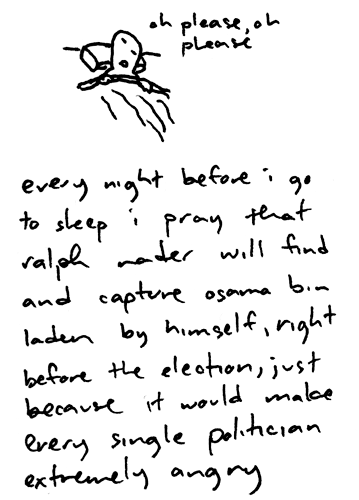 oh please, oh
please
every night before i go
to sleep i pray that
ralph nader will find
and capture osama bin
laden by himself, right
before the election, just
because it would make
every single politician
extremely angry